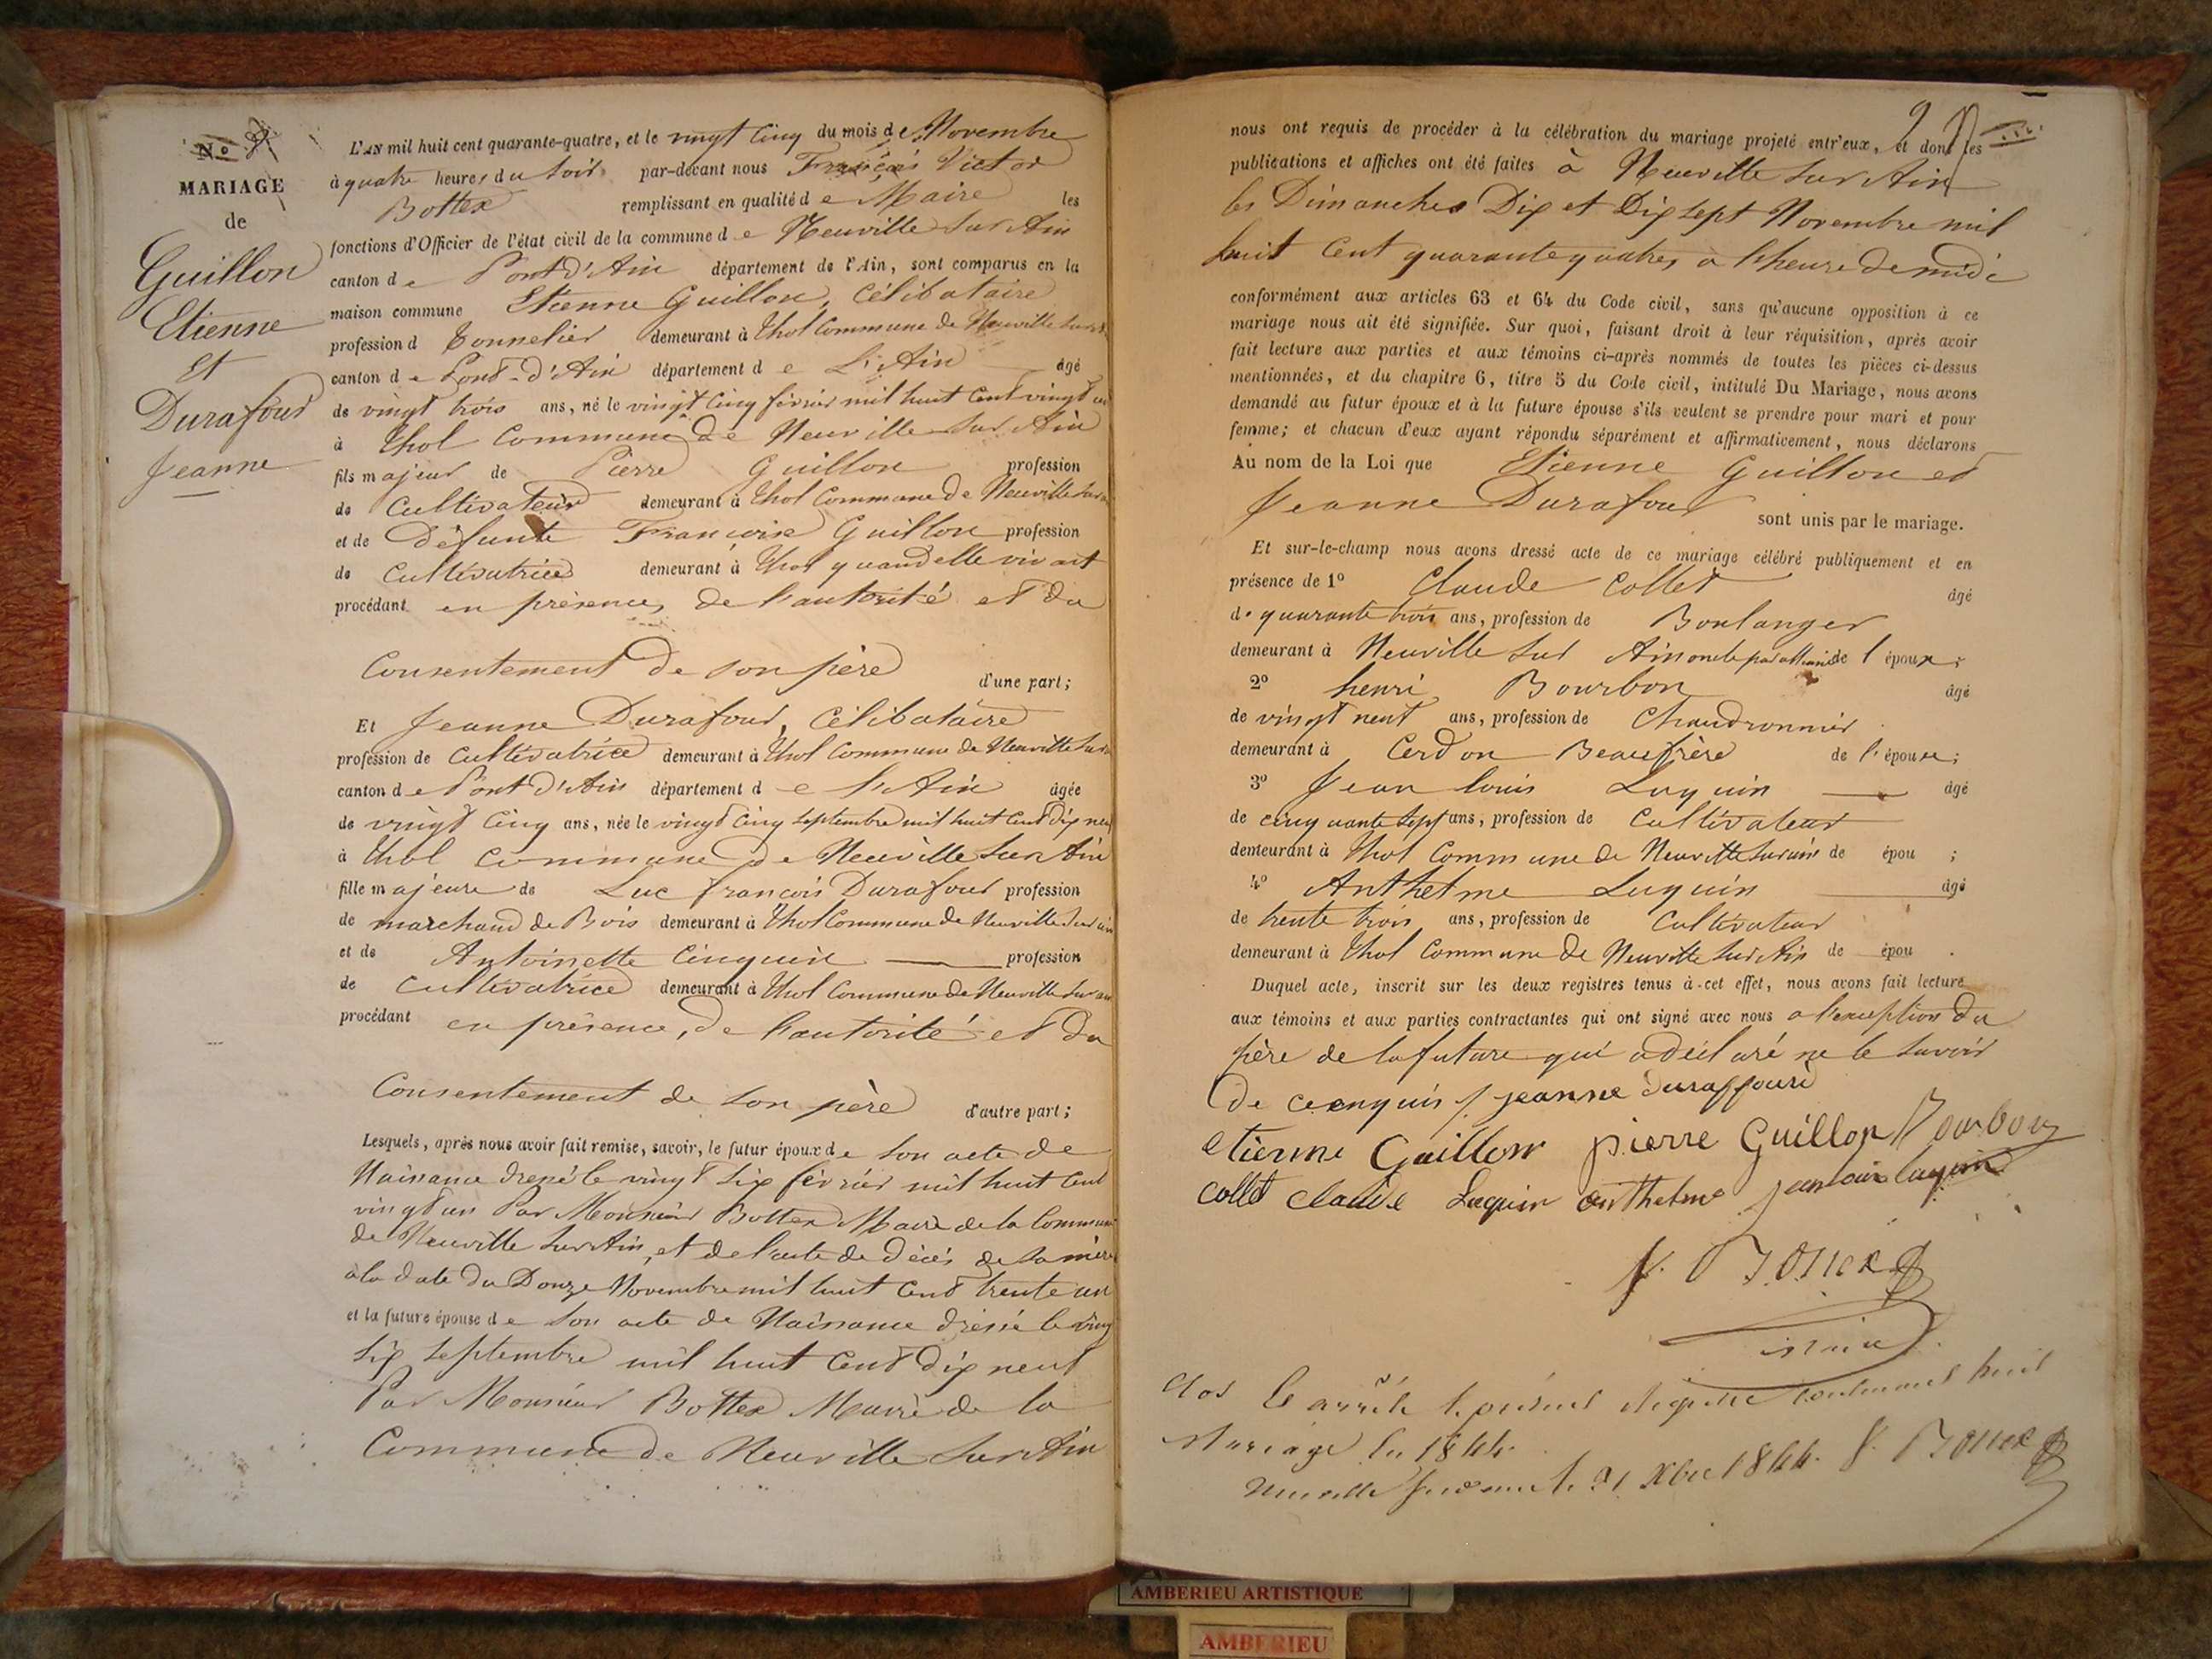 No 8
MARIAGE
de
Guillon
Etienne
Et
Durafour
Jeanne
L'AN mil huit cent quarante-quatre, et le vingt cinq du mois de Novembre
à quatre heures du soir par-devant nous François Victor
Bottex remplissant en qualité de Maire les
fonctions d'Officier de l'état civil de la commune de Neuville sur Ain
canton de Pont d'Ain département de l'Ain, sont comparus en la
maison commune Etienne Guillon, Célibataire
profession d Tonnelier demeurant à Thol Commune de Neuville sur
canton de Pont-d'Ain département de L'Ain âgé
de vingt trois ans, né le vingt cinq février mil huit cent vingt un
à Thol Commune de Neuville sur Ain
fils majeur de Pierre Guillon profession
de Cultivateur demeurant à Thol Commune de Neuville sur
et de défunte Françoise Guillon profession
de Cultivatrice demeurant à Thol quand elle vivait
procédant en présence, de l'autorité et du
Consentement de son père d'une part;
Et Jeanne Durafour, Célibataire
profession de Cultivatrice demeurant à Thol Commune de Neuville sur
canton de Pont d'Ain département de l'Ain âgée
de vingt cinq ans, née le vingt cinq septembre mil huit cent dix neuf
à Thol Commune de Neuville sur Ain
fille majeure de Luc françois Durafour profession
de marchand de Bois demeurant à Thol Commune de Neuville sur ain
et de Antoinette Cinquin profession
de Cultivatrice demeurant à Thol Commune de Neuville sur ain
procédant en présence, de l'autorité et du
Consentement de son père d'autre part;
Lesquels, après nous avoir fait remise, savoir, le futur époux de son acte de
Naissance dressé le vingt six février mil huit cent
vingt un Par Monsieur Bottex Maire de la Commune
de Neuville sur Ain, et de l'acte de décès de sa mère
à la date du Douze Novembre mil huit cent trente un
et la future épouse de son acte de Naissance dressé le ving
six septembre mil huit cent dix neuf
Par Monsieur Bottex Maire de la
Commune de Neuville sur Ain
nous ont requis de procéder à la célébration du mariage projeté entr'eux, et dont les
publications et affiches ont été faites à Neuville sur Ain
les Dimanches Dix et Dix sept Novembre mil
huit cent quarante quatre, à l'heure de midi
conformément aux articles 63 et 64 du Code civil, sans qu'aucune opposition à ce
mariage nous ait été signifiée. Sur quoi, faisant droit à leur réquisition, après avoir
fait lecture aux parties et aux témoins ci-après nommés de toutes les pièces ci-dessus
mentionnées, et du chapitre 6, titre 5 du Code civil, intitulé Du Mariage, nous avons
demandé au futur époux et à la future épouse s'ils veulent se prendre pour mari et pour
femme; et chacun d'eux ayant répondu séparément et affirmativement, nous déclarons
Au nom de la Loi que Etienne Guillon et
Jeanne Durafour sont unis par le mariage.
Et sur-le-champ nous avons dressé acte de ce mariage célébré publiquement et en
présence de 1º Claude Collet âgé
de quarante trois ans, profession de Boulanger
demeurant à Neuville sur Ain oncle par alliance de l'époux;
2º henri Bourbon âgé
de vingt neuf ans, profession de Chaudronnier
demeurant à Cerdon Beaufrère de l'épouse;
3º Jean louis Luquin âgé
de cinquante sept ans, profession de Cultivateur
demeurant à Thol Commune de Neuville sur ain de épou ;
4º Anthelme Luquin âgé
de trente trois ans, profession de Cultivateur
demeurant à Thol Commune de Neuville sur Ain de épou .
Duquel acte, inscrit sur les deux registres tenus à cet effet, nous avons fait lecture
aux témoins et aux parties contractantes qui ont signé avec nous à l'exception du
père de la future qui a déclaré ne le savoir
De ce enquis / jeanne duraffour
etienne Guillon pierre Guillon Bourbon
collet claude Luquin anthelme jean louis luquin
f. Bottex
Clos et arrêté le présent registre contenant huit
Mariage en 1844.
Neuville sur ain le 31 Xbre 1844. f. Bottex
AMBERIEU ARTISTIQUE
AMBERIEU